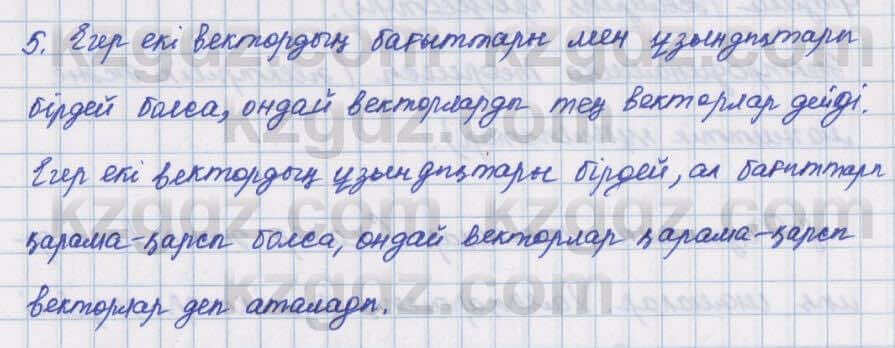 5. Егер екі вектордың бағыттары мен ұзындықтары
бірдей болса, ондай векторларды тең векторлар дейді.
Егер екі вектордың ұзындықтары бірдей, ал бағыттары
қарама-қарсы болса, ондай векторлар қарама-қарсы
векторлар деп аталады.
kzgdz.com